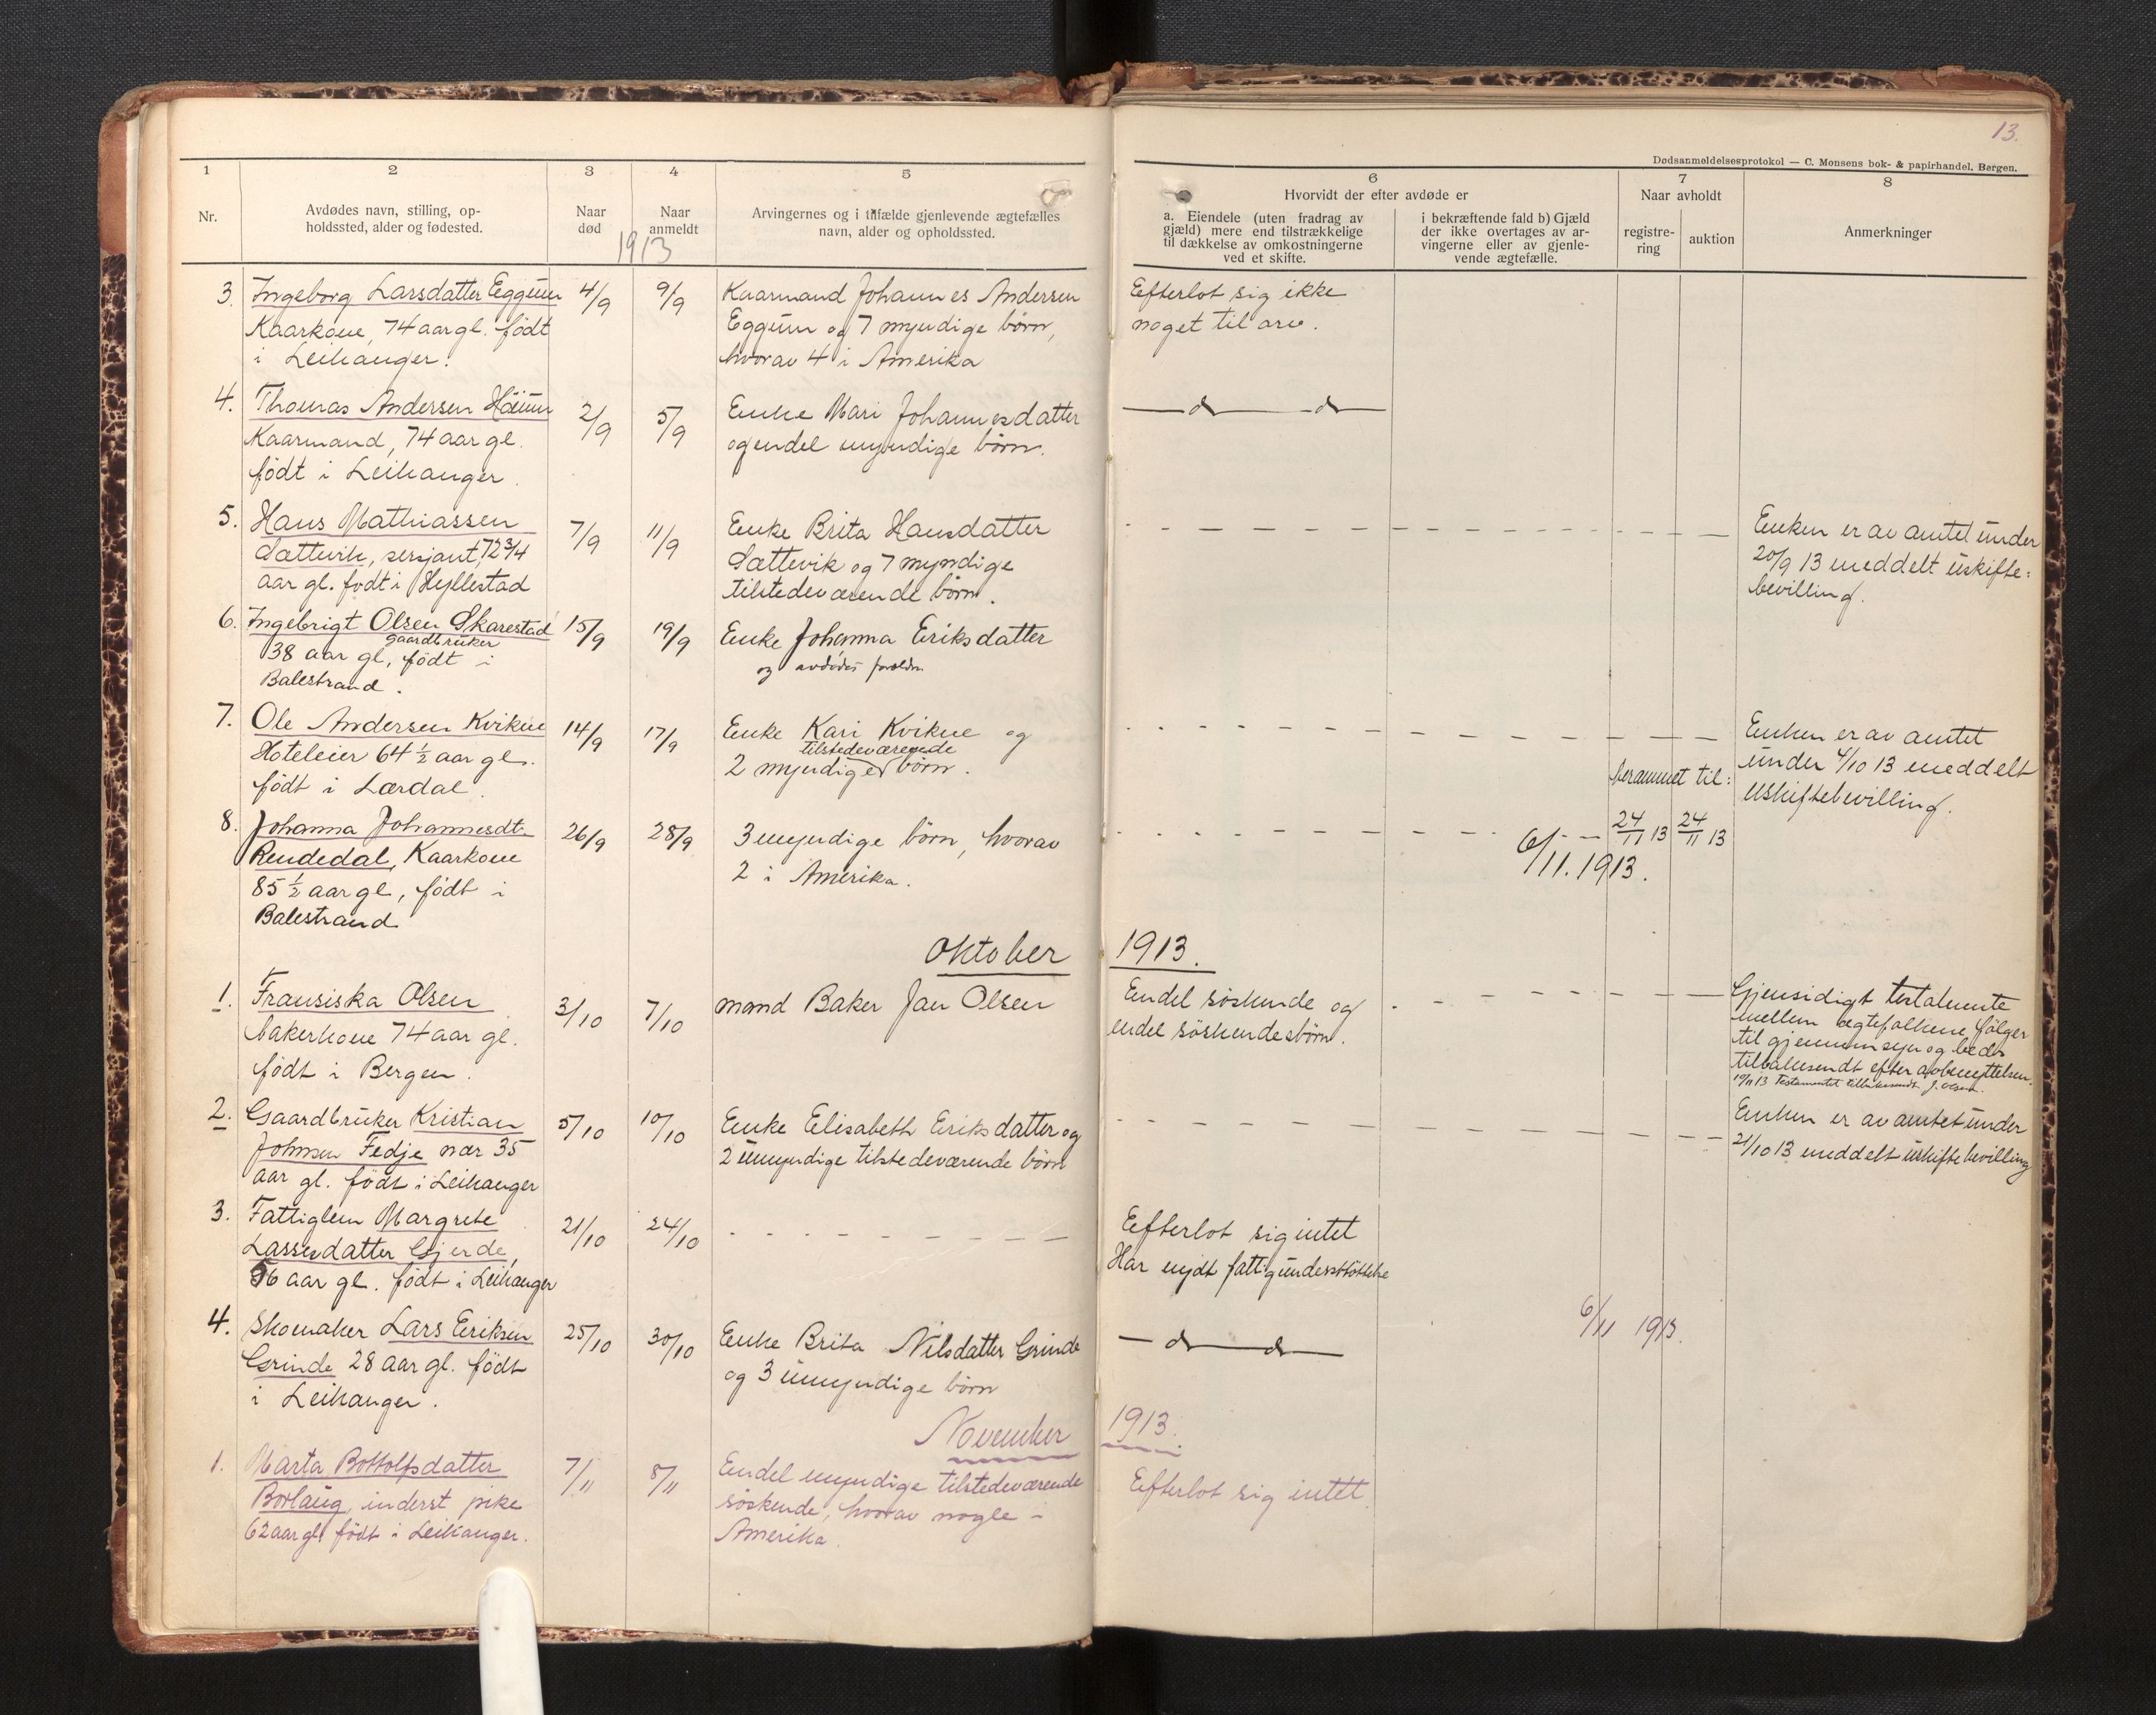 13.
Dødsanmeldelsesprotokol — C. Monsens bok- & papirhandel. Bergen.
1
2
3
4
5
6
7
8
Nr.
Avdødes navn, stilling, op-
holdssted, alder og fødested.
Naar
død
Naar
anmeldt
1913
Arvingernes og i tilfælde gjenlevende ægtefælles
navn, alder og opholdssted.
Hvorvidt der efter avdøde er
a. Eiendele (uten fradrag av
gjæld) mere end tilstrækkelige
til dækkelse av omkostningerne
ved et skifte.
i bekræftende fald b) Gjæld
der ikke overtages av ar-
vingerne eller av gjenle-
vende ægtefælle.
Naar avholdt
registre-
ring
auktion
Anmerkninger
3. Ingeborg Larsdatter Eggum
Kaarkone, 74 aar gl. født
i Leikanger.
4/9
9/9
Kaarmand Johannes Andersen
Eggum og 7 myndige børn,
hvorav 4 i Amerika
Efterlot sig ikke
noget til arv.
4. Thomas Andersen Häum
Kaarmand, 74 aar gl.
født i Leikanger.
2/9
5/9
Enke Mari Johannesdatter
og endel myndige børn.
— d — d —
5. Hans Mathiassen
Sættevik, sersjant, 72 3/4
aar gl. født i Hyllestad
7/9
11/9
Enke Brita Hansdatter
Sættevik og 7 myndige
tilstedeværende børn.
Enken er av amtet under
20/9 13 meddelt uskifte=
bevilling.
6. Ingebrigt Olsen Skarestad
gaardbruker
38 aar gl, født i
Balestrand.
15/9
19/9
Enke Johanna Eriksdatter
og avdødes forældre
7. Ole Andersen Kvikne
Hoteleier 64 1/2 aar gl.
født i Lærdal.
14/9
17/9
Enke Kari Kvikne og
tilstedeværende
2 myndige børn.
Enken er av amtet
under 4/10 13 meddelt
uskiftebevilling.
8. Johanna Johannesdt.
Rendedal, Kaarkone
85 1/2 aar gl, født i
Balestrand
26/9
28/9
3 myndige børn, hvorav
2 i Amerika.
berammet til:
24/11 13
24/11 13
6/11. 1913.
Oktober 1913.
1. Fransiska Olsen
bakerkone 74 aar gl.
født i Bergen.
3/10
7/10
mand Baker Jan Olsen
Endel søskende og
endel søskendesbørn.
Gjensidigt testamente
mellem ægtefolkene følger
til gjennemsyn og bedes
tilbakesendt efter avbenyttelsen.
Testamentet tilbakesendt. J. Olsen.
2. Gaardbruker Kristian
Johnsen Fedje nær 35
aar gl. født i Leikanger
5/10
10/10
Enke Elisabeth Eriksdatter og
2 umyndige tilstedeværende børn
Enken er av amtet under
21/10 13 meddelt uskiftebevilling
3. Fattiglem Margrete
Lassesdatter Gjerde,
56 aar gl. født i Leikanger
21/10
24/10
Efterlot sig intet
Har nydt fattigunderstøttelse
4. Skomaker Lars Eriksen
Grinde 28 aar gl. født
i Leikanger.
25/10
30/10
Enke Brita Nilsdatter Grinde
og 3 umyndige børn
— d — d —
6/11 1913.
November 1913.
1. Marta Bottolfsdatter
Borlaug, inderst pike
62 aar gl født i Leikanger.
7/11
8/11
Endel myndige tilstedeværende
søskende, hvorav nogle i
Amerika.
Efterlot sig intet